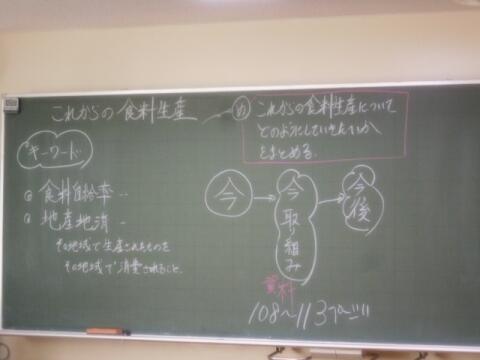 これからの食料生産
め
これからの食料生産について
どのようにしていきたいか
をまとめる。
キーワード
食料自給率…
地産地消…
その地域で生産されたものを
その地域で消費されること。
今
今
取り組み
今後
資料
108～113ページ